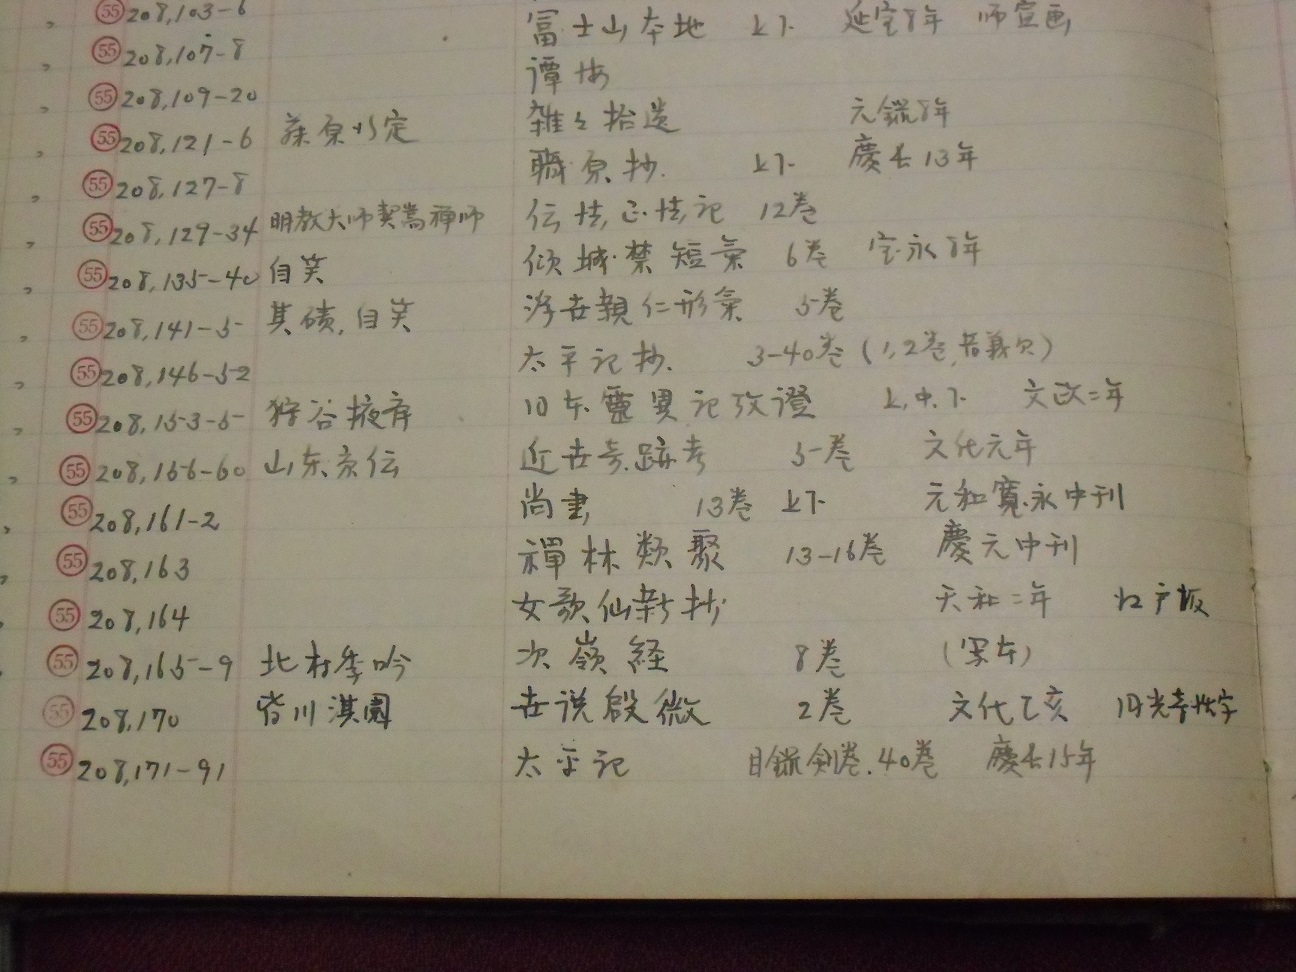 55 208,103-6
富士山本地 上下 延宝8年 師宣画
55 208,107-8
譚海
55 208,109-20
雑々拾遺 元録8年
55 208,121-6 藤原
職原抄 上下 慶長13年
55 208,127-8
伝法正法記 12巻
55 208,129-34 明教大師契嵩禅師
傾城禁短氣 6巻 宝永8年
55 208,135-40 自笑
浮世親仁形氣 5巻
55 208,141-5 其磧,自笑
太平記抄 3-40巻(1,2巻,音義欠)
55 208,146-52
日本靈異記攷證 上,中,下 文政二年
55 208,153-5 狩谷掖斎
近世奇跡考 5巻 文化元年
55 208,156-60 山東京伝
尚書 13巻 上下 元和寛永中刊
55 208,161-2
禪林類聚 13-16巻 慶元中刊
55 208,163
女歌仙新抄 天和二年 江戸板
55 208,164
次嶺経 8巻 (写本)
55 208,165-9 北村季吟
世说啟微 2巻 文化乙亥
55 208,170 皆川淇園
太平記 目録剣巻,40巻 慶長15年
55 208,171-91